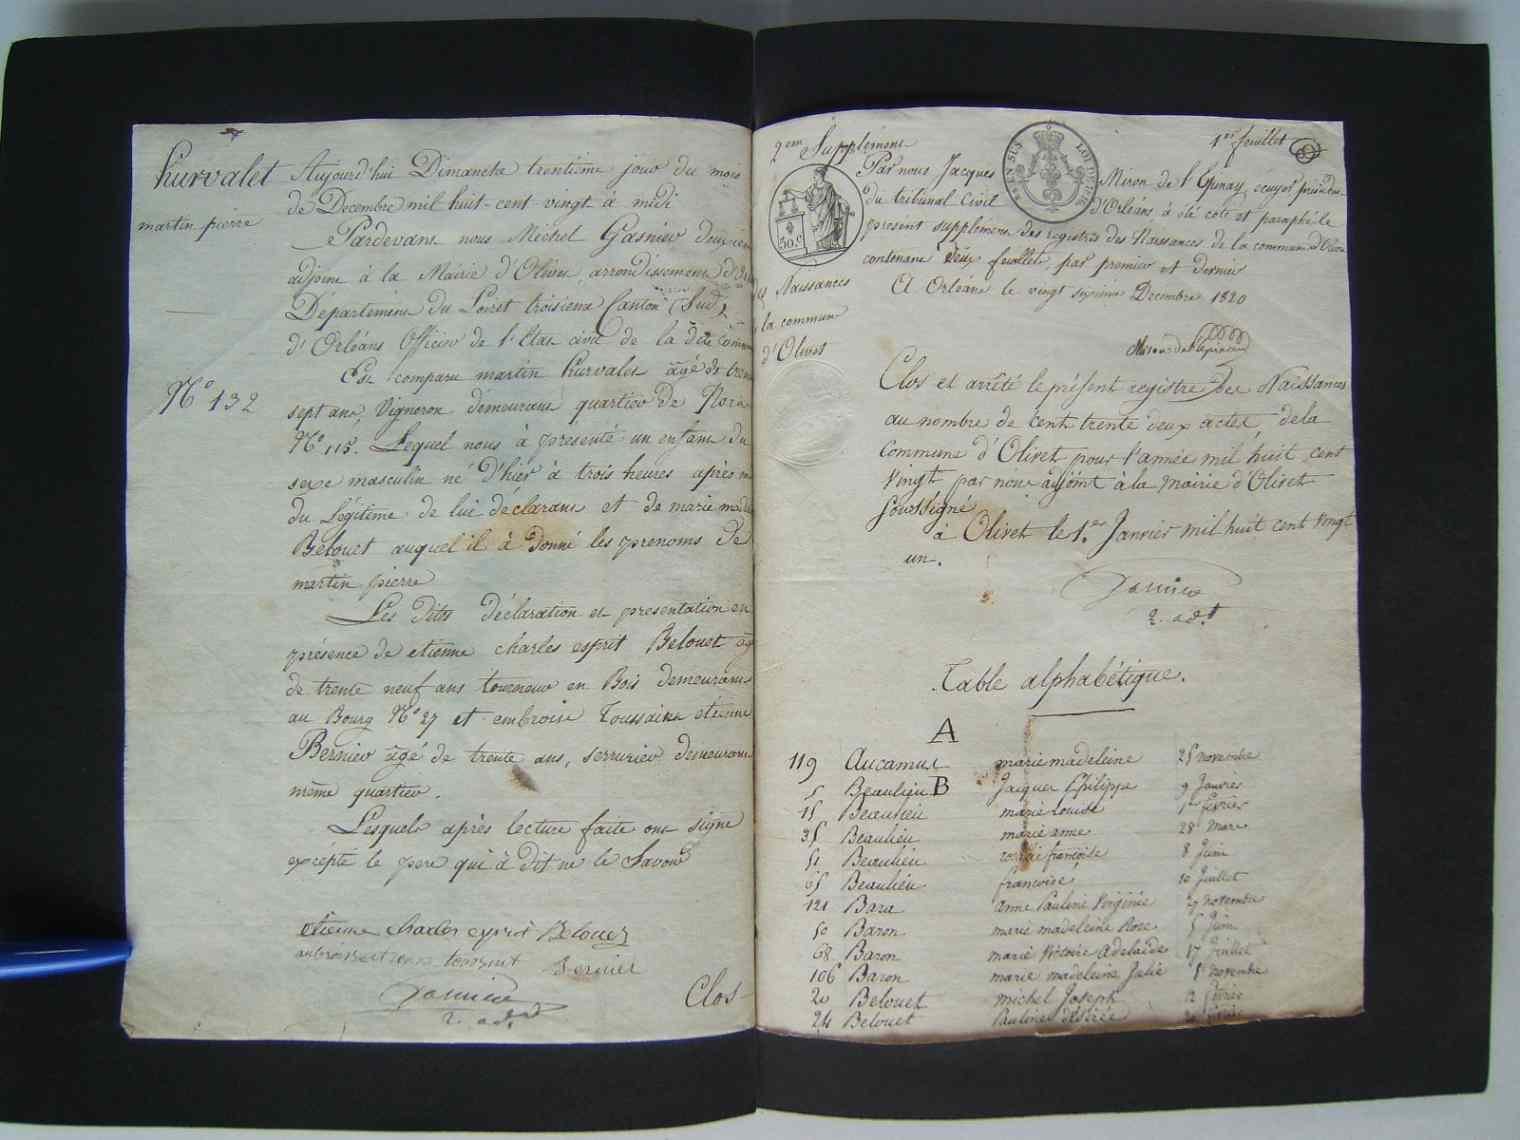 hurvalet
martin pierre
N.° 132
Aujourd'hui Dimanche trentieme jour du mois
de Decembre mil huit-cent-vingt à midi
Pardevant nous Michel Gasnier deuxiem
adjoint à la Mairie d'Olivet, arrondissement d'Orl
Département du Loiret troisieme Canton (Sud)
d'Orléans Officier de l'Etat civil de la dite Commune
Est comparu martin hurvalet âgé de trente
sept ans Vigneron demeurant quartier de
N.° 115. Lequel nous à présenté un enfant du
sexe masculin né d'hier à trois heures après m
du Légitime de lui déclarant et de marie made
Belouet auquel il à Donné les prenoms de
martin pierre
Les Dites déclaration et presentation en
présence de etienne charles esprit Belouet ag
de trente neuf ans tourneur en Bois demeurant
au Bourg N.° 27 et embroise Toussaint etienne
Bernier âgé de trente ans, serrurier demeurant
même quartier.
Lesquels après lecture faite ont signé
excépté le pere qui à dit ne le Savoir
etienne charles esprit Belouet
Bernier
2. adt
Clos
2em Supplément
1er feuillet
Par nous Jacques Miron de l'Epinay, ecuyer président
du tribunal Civil d'Orléans, à été coté et paraphé le
présent supplément des registres des Naissances de la commune d'Olivet
contenant deux feuillets, par premier et dernier
A Orléans le vingt sixieme Decembre 1820
EN SUS
LOI DE 1816
50.c
des Naissances
la commune
d'Olivet
Miron de l'Epinay
Clos et arrêté le présent registre des Naissances
au nombre de Cent trente deux actes de la
Commune d'Olivet pour l'année mil huit cent
Vingt par nous adjoint à la Mairie d'Olivet
Soussigné
à Olivet le 1.er Janvier mil huit cent vingt
un.
2. adt
Table alphabétique.
A
119 Aucamus marie madeleine 25 novembre
B
5 Beaulieu Jacques Philippe 9 Janvier
15 Beaulieu marie Louise 1er février
35 Beaulieu marie anne 28 Mars
51 Beaulieu françoise 8 Juin
65 Beaulieu francoise 10 Juillet
121 Bara anne Pauline Virginie 29 novembre
50 Baron marie madeleine Rose 5 Juin
68 Baron marie Victoire adelaide 17 Juillet
106 Baron marie madeleine Julie 8 novembre
20 Belouet michel Joseph 12 février
24 Belouet Pauline désirée